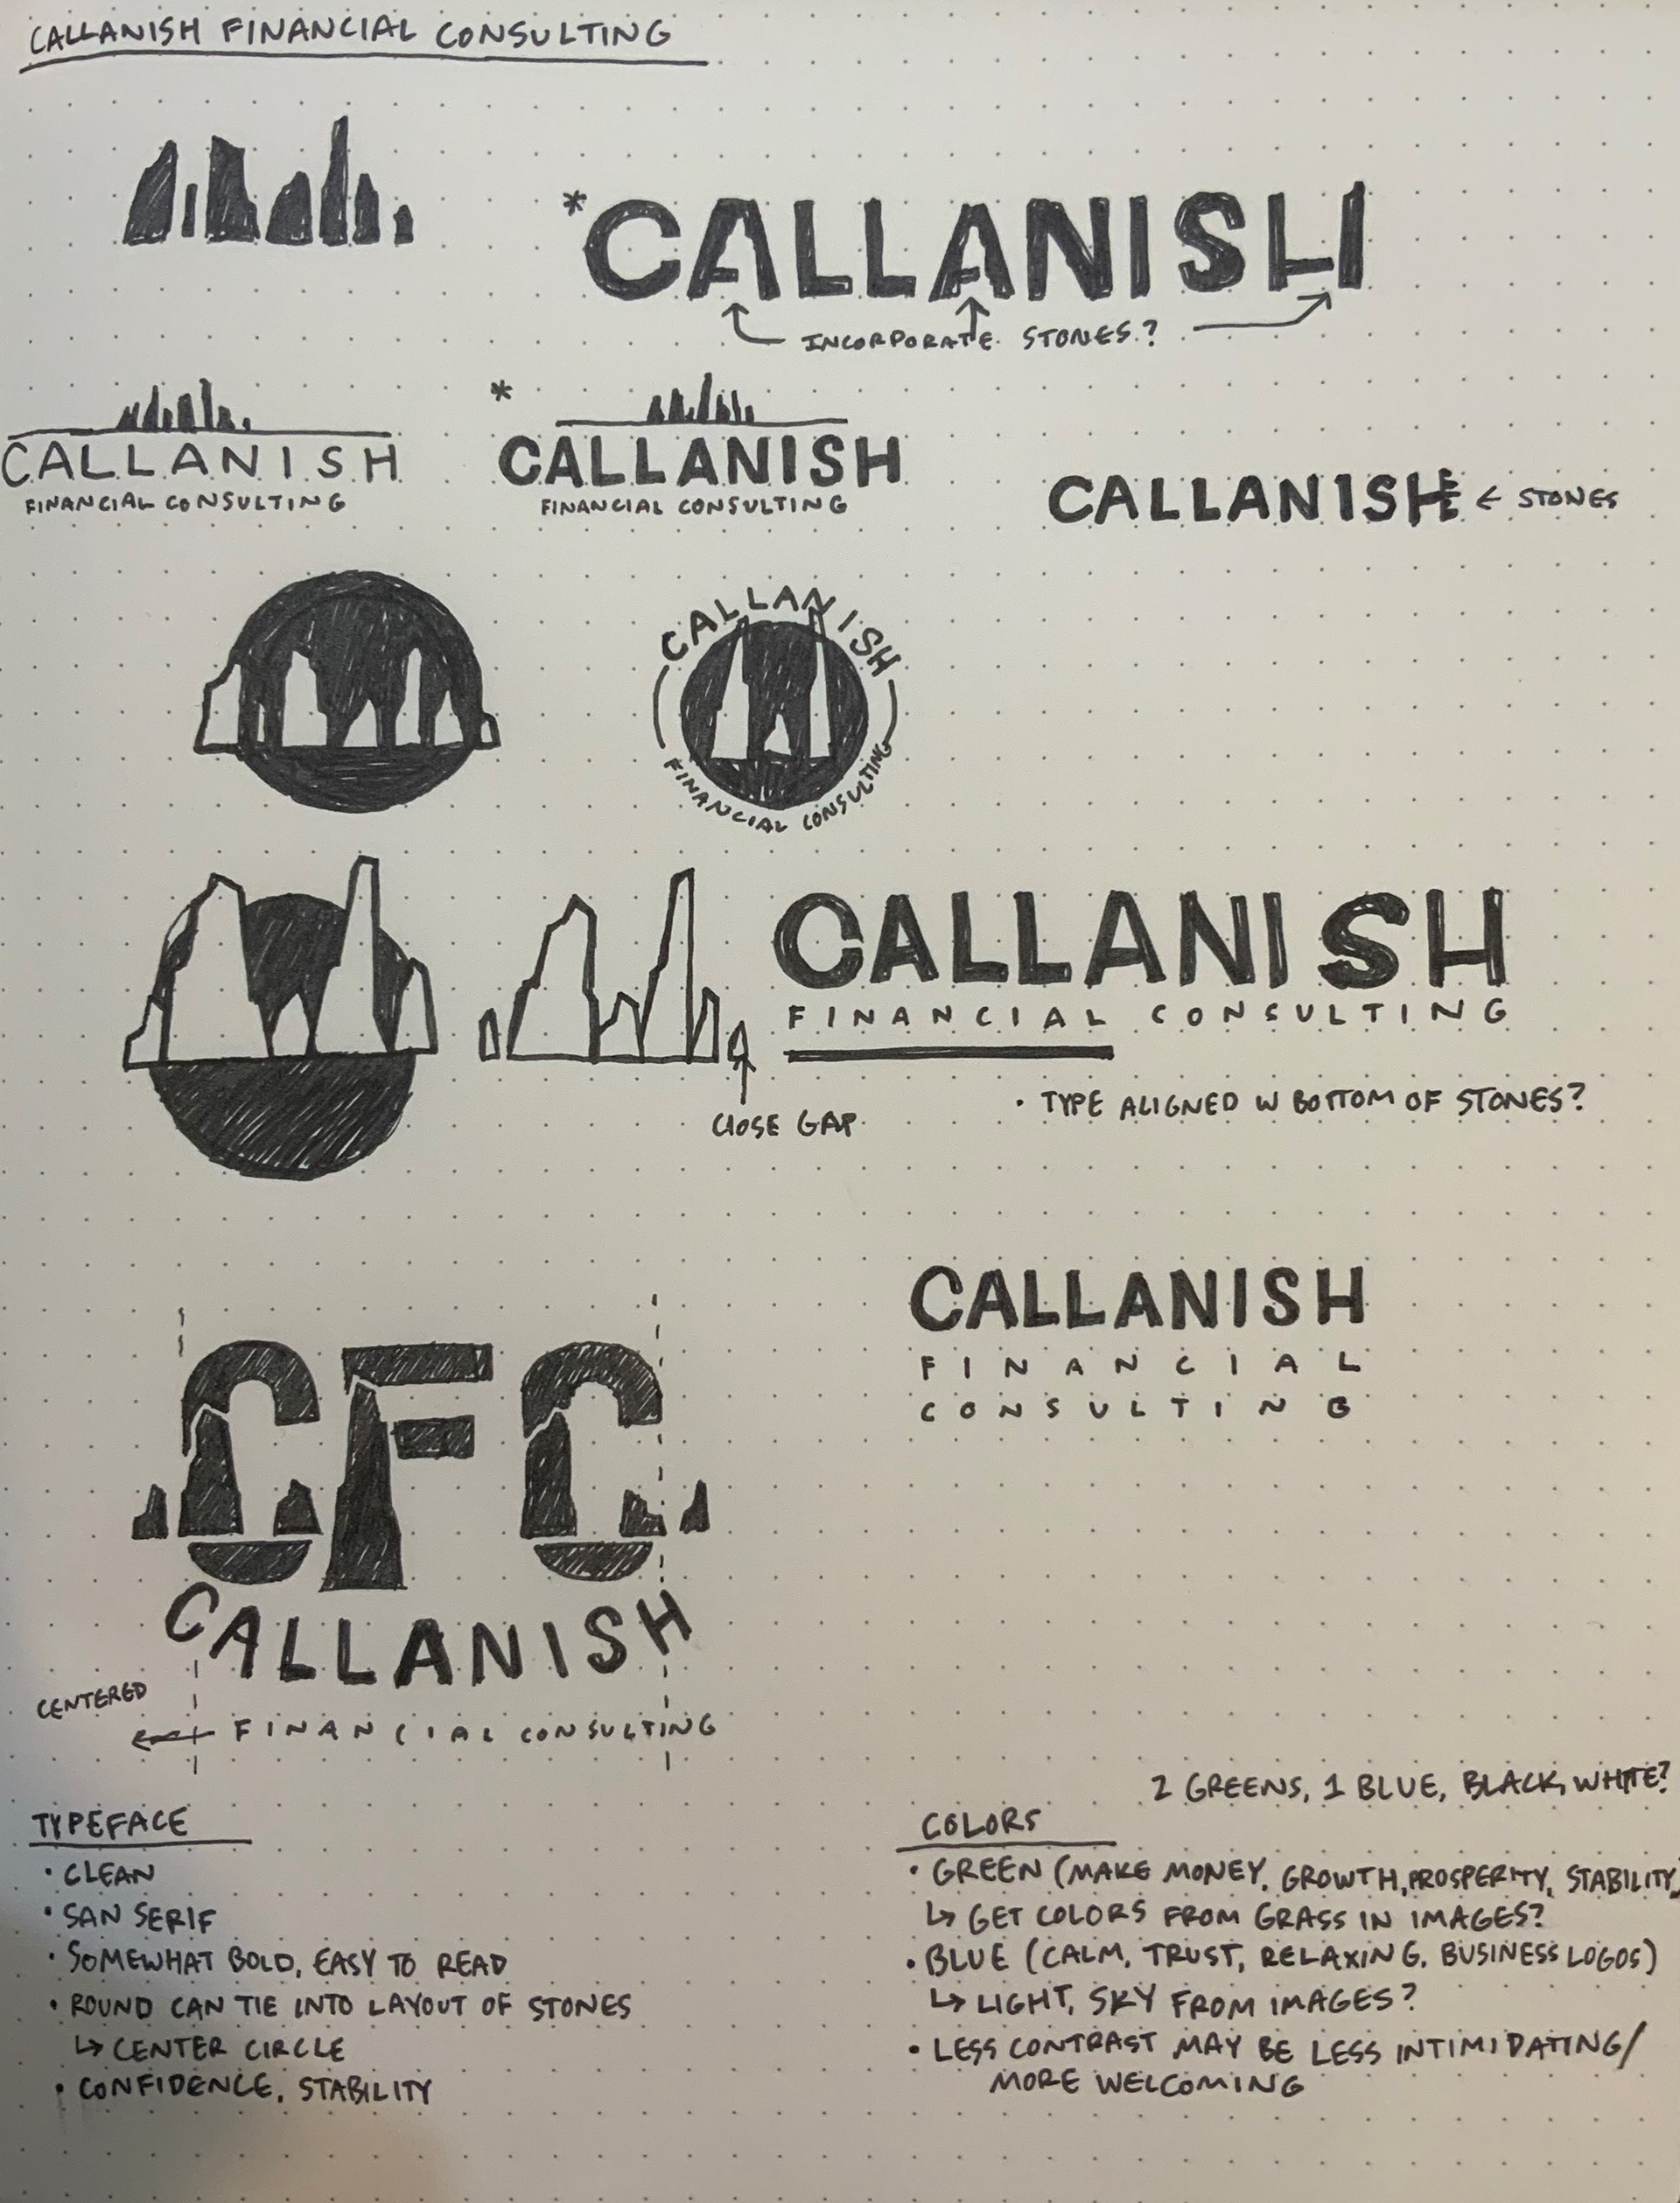 CALLANISH FINANCIAL CONSULTING
*CALLANISH
INCORPORATE STONES?
CALLANISH
FINANCIAL CONSULTING
*
CALLANISH
FINANCIAL CONSULTING
CALLANISH ← STONES
CALLANISH
FINANCIAL CONSULTING
CALLANISH
FINANCIAL CONSULTING
CLOSE GAP
• TYPE ALIGNED W BOTTOM OF STONES?
CALLANISH
FINANCIAL
CONSULTING
CFC
CALLANISH
CENTERED
FINANCIAL CONSULTING
TYPEFACE
• CLEAN
• SAN SERIF
• SOMEWHAT BOLD, EASY TO READ
• ROUND CAN TIE INTO LAYOUT OF STONES
↳ CENTER CIRCLE
• CONFIDENCE, STABILITY
2 GREENS, 1 BLUE, BLACK, WHITE?
COLORS
• GREEN (MAKE MONEY, GROWTH, PROSPERITY, STABILITY)
↳ GET COLORS FROM GRASS IN IMAGES?
• BLUE (CALM, TRUST, RELAXING, BUSINESS LOGOS)
↳ LIGHT, SKY FROM IMAGES?
• LESS CONTRAST MAY BE LESS INTIMIDATING/
MORE WELCOMING